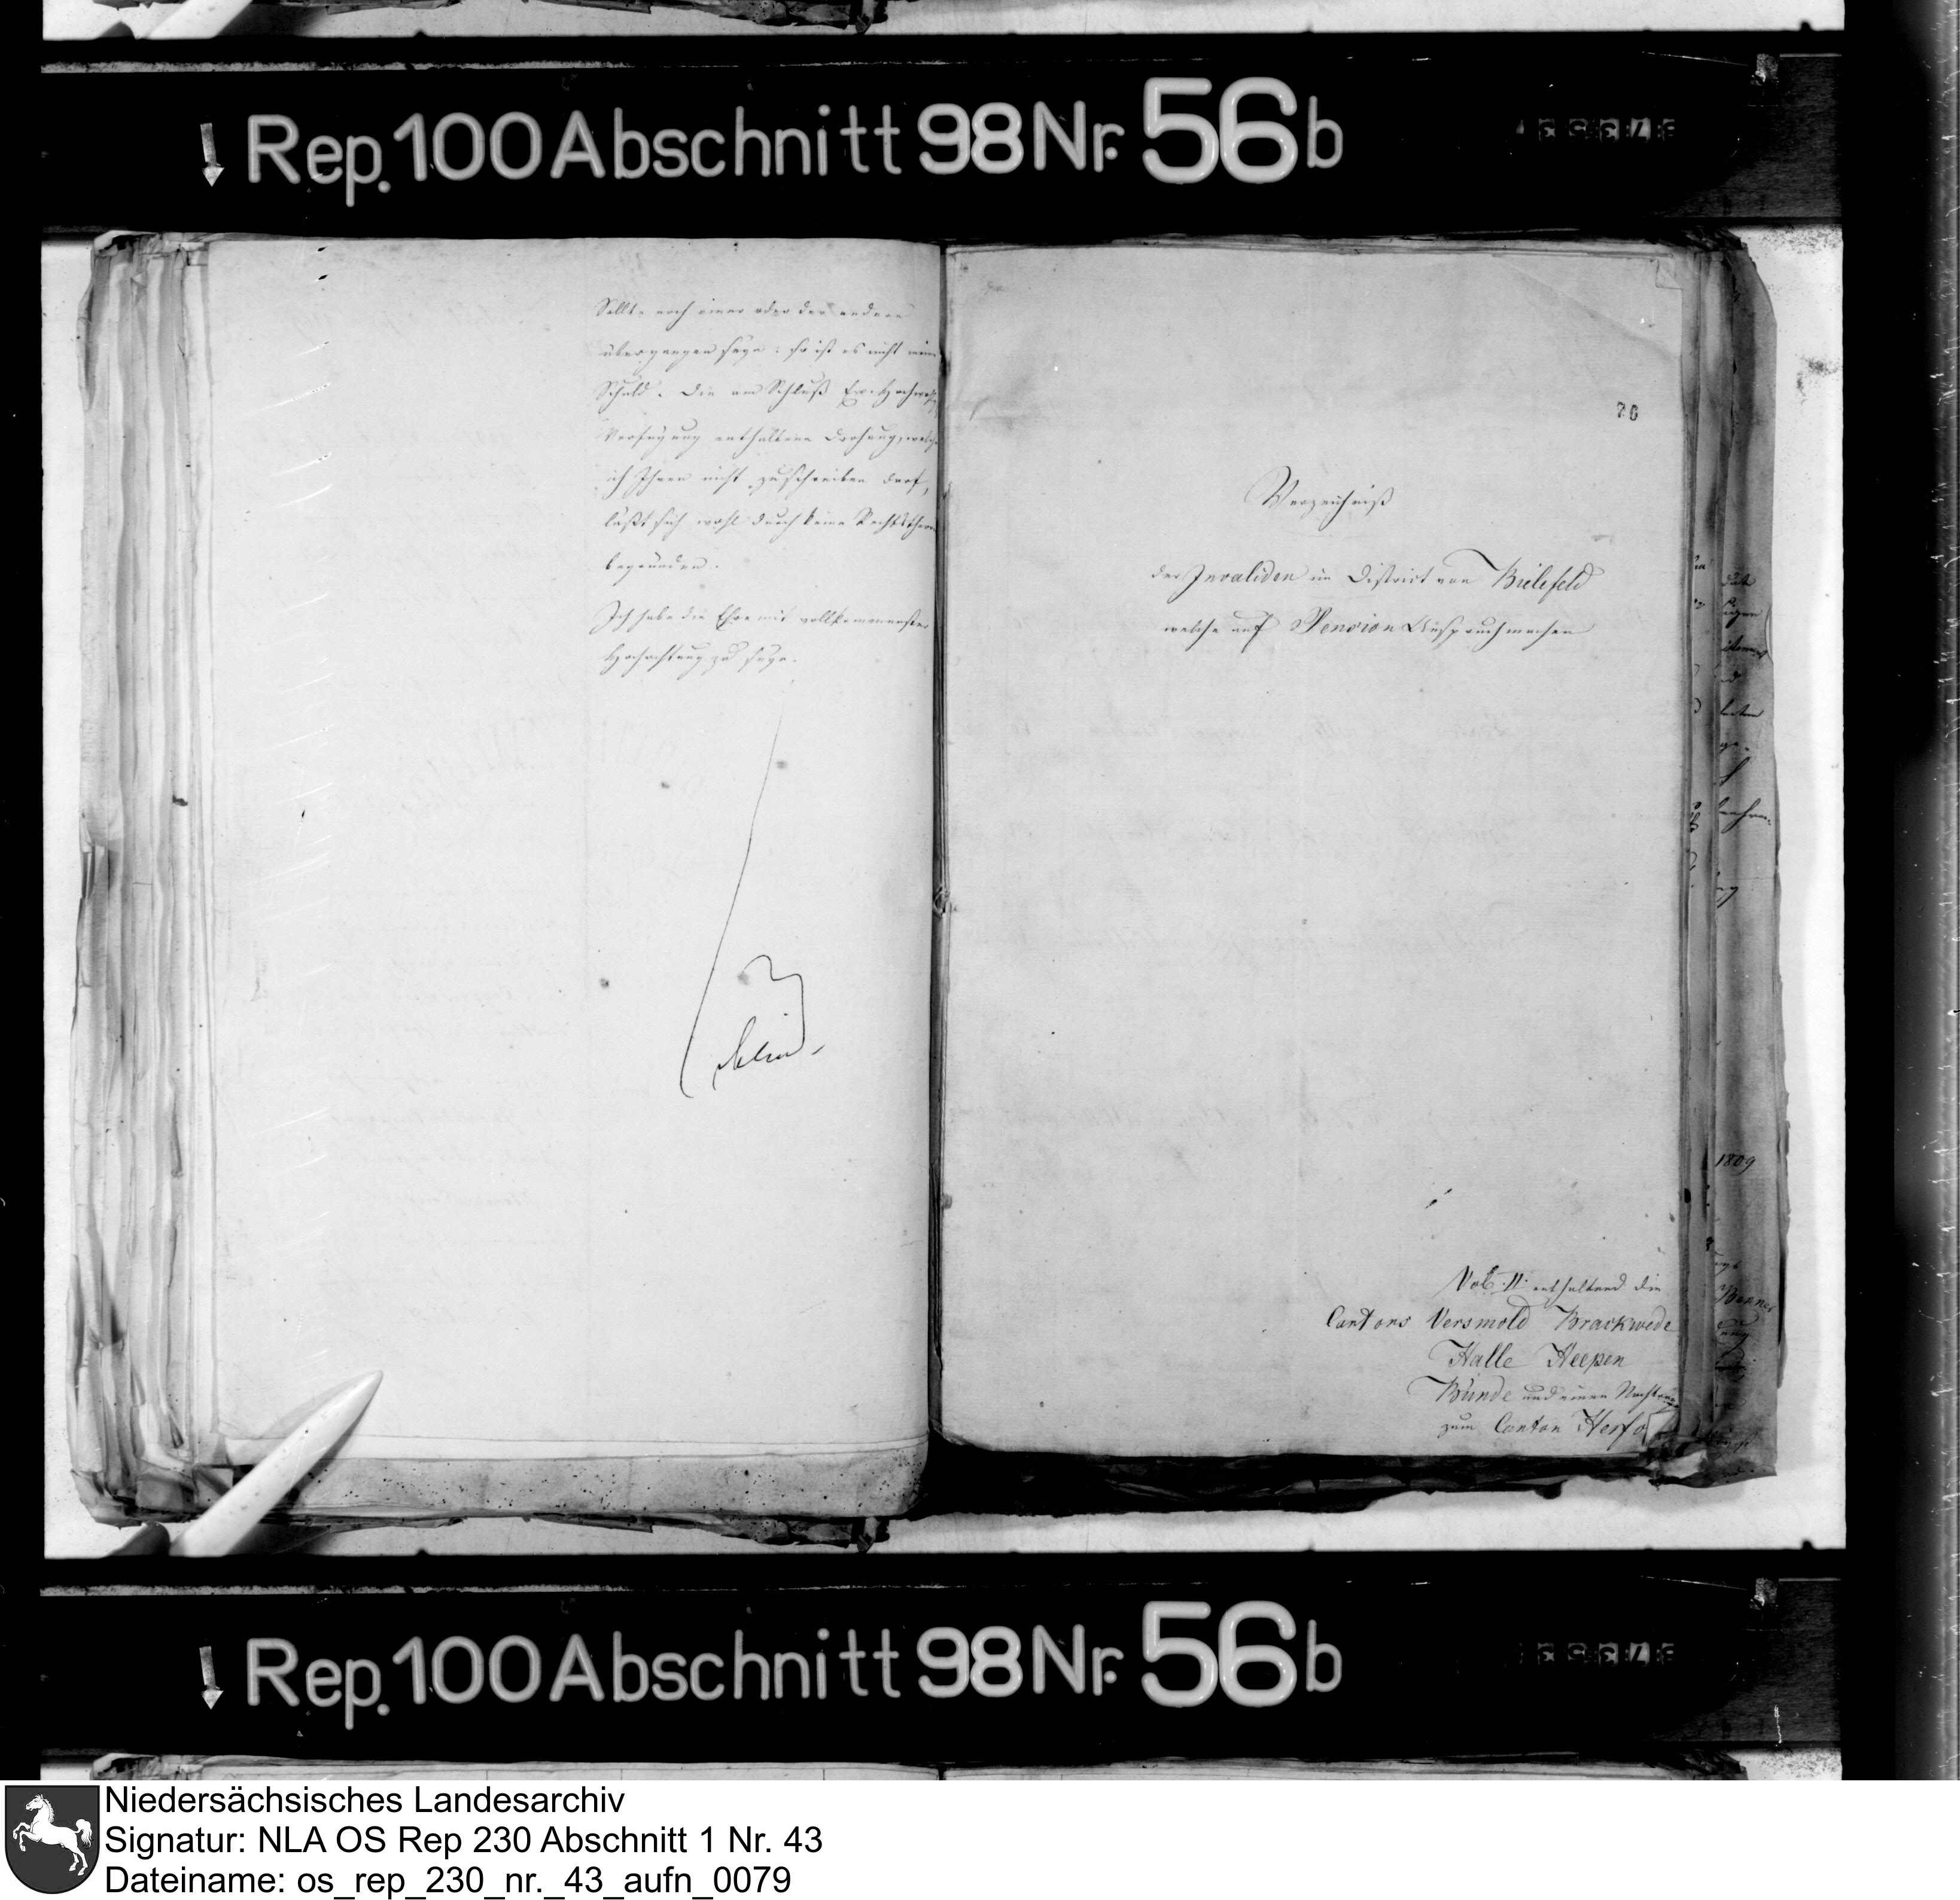 Rep. 100 Abschnitt 98 Nr. 56b
Sollte noch einer oder der andere
übergangen seyn: so ist es nicht meine
Schuld. Die am Schluß Ew. Hochwohlg
Verfügung enthaltene Drohung, welche
ich Ihnen nicht zuschreiben darf,
läßt sich wohl durch keine
begründen.
Ich habe die Ehre mit vollkommenster
Hochachtung zu seyn.
70
Verzeichniß
der Invaliden im District von Bielefeld
welche auf Pension Anspruch machen
1809
Vol. II. enthaltend die
Cantons Versmold Brackwede
Halle Heepen
Bünde und einen Nachtrag
zum Canton Herfo
Rep. 100 Abschnitt 98 Nr. 56b
Niedersächsisches Landesarchiv
Signatur: NLA OS Rep 230 Abschnitt 1 Nr. 43
Dateiname: os_rep_230_nr._43_aufn_0079